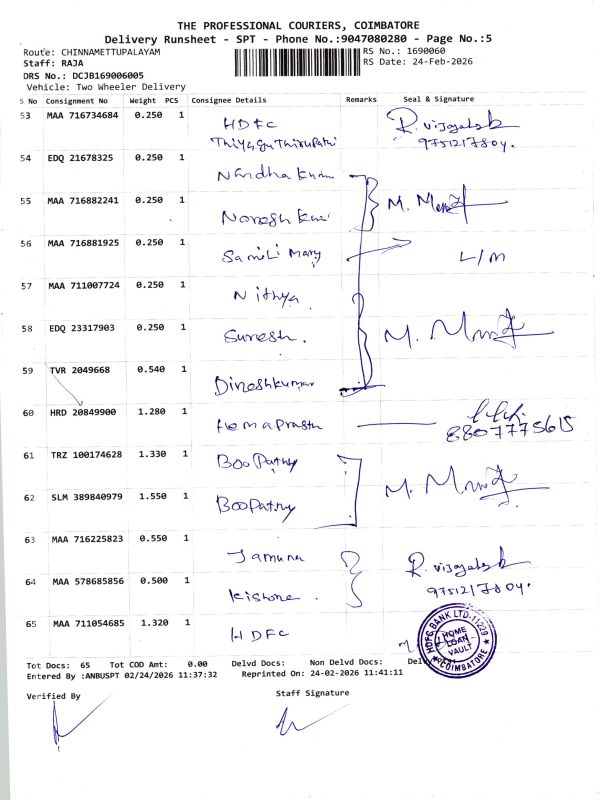 THE PROFESSIONAL COURIERS, COIMBATORE
Delivery Runsheet - SPT - Phone No.:9047080280 - Page No.:5
Route: CHINNAMETTUPALAYAM RS No.: 1690060
Staff: RAJA RS Date: 24-Feb-2026
DRS No.: DCJB169006005
Vehicle: Two Wheeler Delivery
S No Consignment No Weight PCS Consignee Details Remarks Seal & Signature
53 MAA 716734684 0.250 1 HDFC
9751217804.
54 EDQ 21678325 0.250 1
55 MAA 716882241 0.250 1 Naresh Kumar
56 MAA 716881925 0.250 1 Mary L/M
57 MAA 711007724 0.250 1 Nithya
58 EDQ 23317903 0.250 1 Suresh.
59 TVR 2049668 0.540 1 Dineshkumar
60 HRD 20849900 1.280 1
8807775615
61 TRZ 100174628 1.330 1 BooPathy
62 SLM 389840979 1.550 1 BooPathy
63 MAA 716225823 0.550 1 Jamuna
64 MAA 578685856 0.500 1 Kishore. 9751217804.
65 MAA 711054685 1.320 1 HDFC
HDFC BANK LTD-11229
HOME
LOAN
VAULT
COIMBATORE
Tot Docs: 65 Tot COD Amt: 0.00 Delvd Docs: Non Delvd Docs:
Entered By :ANBUSPT 02/24/2026 11:37:32 Reprinted On: 24-02-2026 11:41:11
Verified By Staff Signature